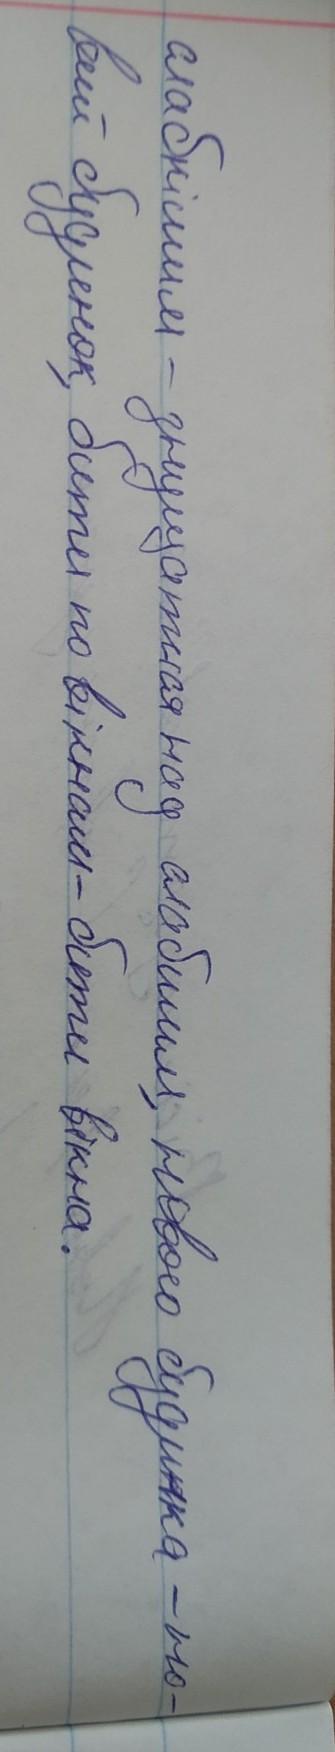 слабкішим – знущатися над слабшим, нового будинка – но-
вий будинок, бити по вікнам – бити вікна.